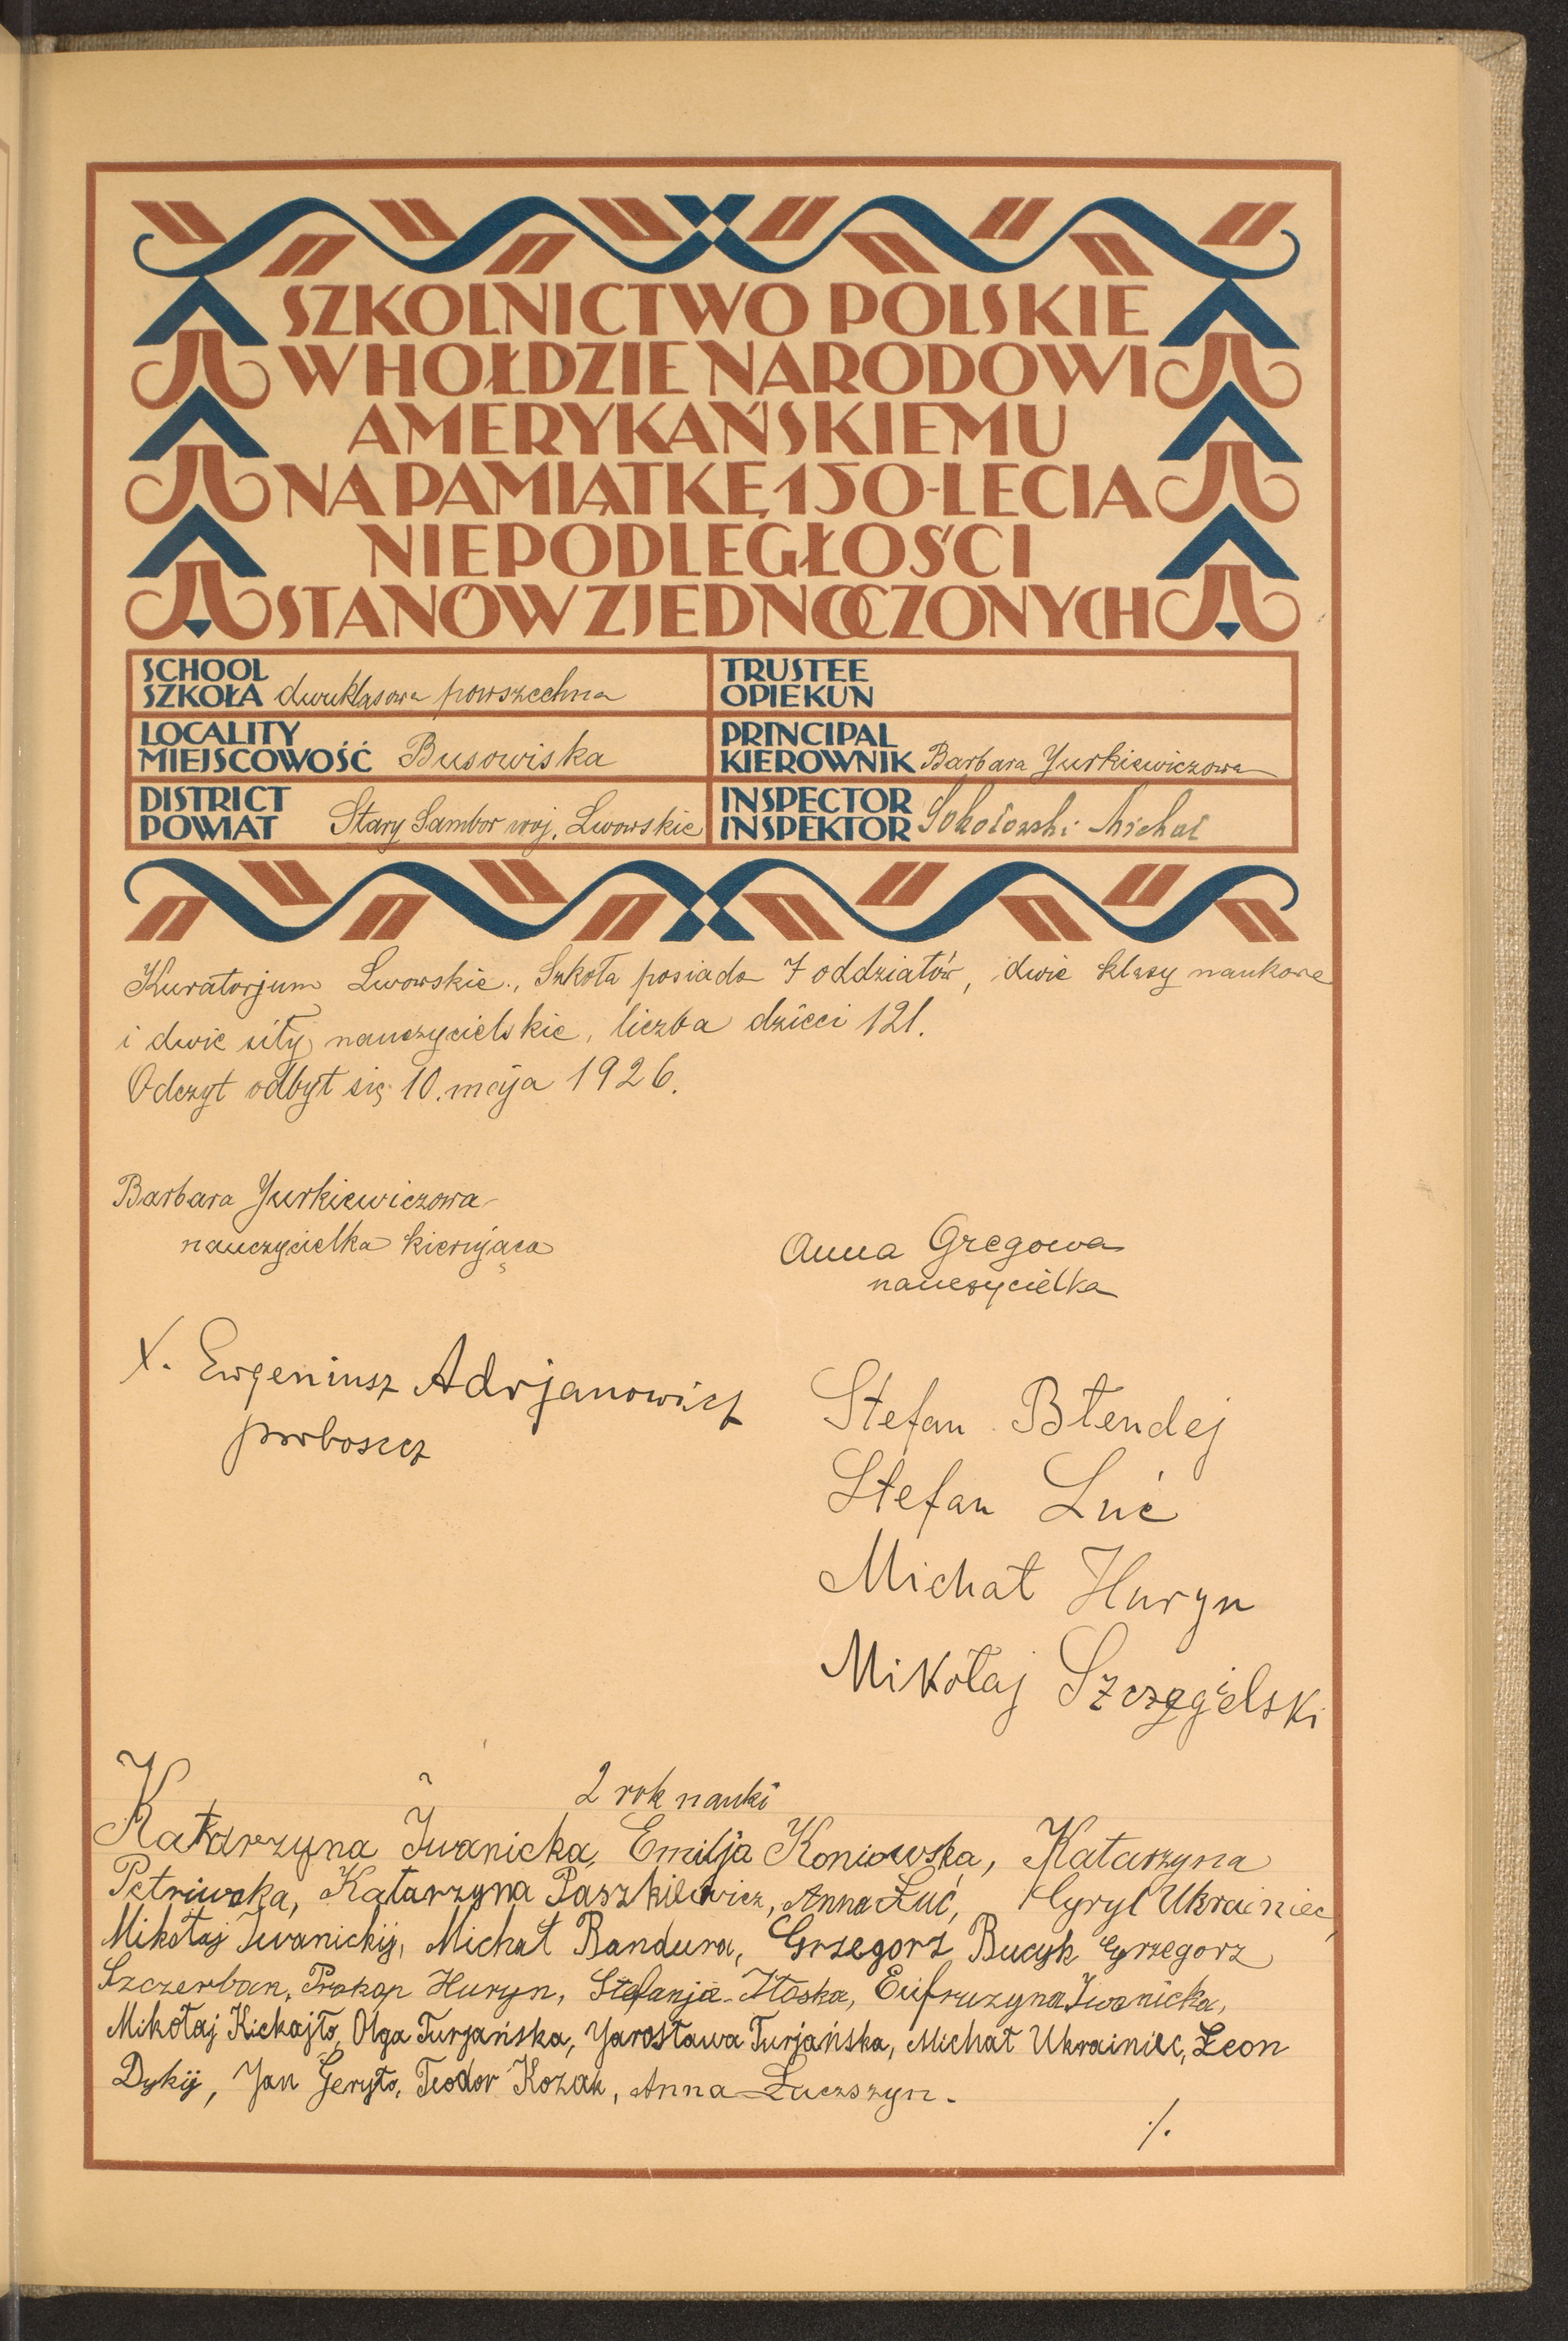 SZKOLNICTWO POLSKIE
W HOŁDZIE NARODOWI
AMERYKAŃSKIEMU
NA PAMIĄTKĘ 150-LECIA
NIEPODLEGŁOŚCI
STANÓW ZJEDNOCZONYCH
SCHOOL
SZKOŁA dwuklasowa powszechna
TRUSTEE
OPIEKUN
LOCALITY
MIEJSCOWOŚĆ Busowiska
PRINCIPAL
KIEROWNIK Barbara Yurkiewiczowa
DISTRICT
POWIAT Stary Sambor woj. Lwowskie
INSPECTOR
INSPEKTOR Sokołowski Michał
Kuratorjum Lwowskie., Szkoła posiada 7 oddziałów, dwie klasy naukowe
i dwie siły nauczycielskie, liczba dzieci 121.
Odczyt odbył się 10. maja 1926.
Barbara Yurkiewiczowa
nauczycielka kierująca
Anna Gregowa
nauczycielka
X. Ewgeniusz Adrjanowicz
proboszcz
Stefan Błendej
Stefan Luć
Michał Huryn
Mikołaj Szczęgielski
2 rok nauki
Katarzyna Iwanicka, Emilja Koniowska, Katarzyna
Petriwska, Katarzyna Paszkilewicz, Anna Łuć, Cyryl Ukrainiec,
Mikołaj Iwanickij, Michał Bandura, Grzegorz Bucyk Grzegorz
Szczerban, Prokop Huryn, Stefanja Iłoska, Eufruzyna Iwanicka,
Mikołaj Kickajło, Olga Turjańska, Yarosława Turjańska, Michał Ukrainiec, Leon
Dykij, Jan Geryło, Teodor Kozak, Anna Łuczszyn.
./.